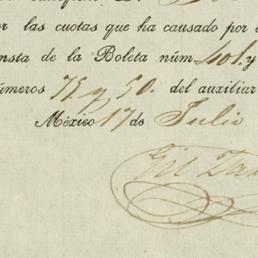 or las cuotas que ha causado por
nsta de la Boleta núm 401. y
úmeros 75 y 50. del auxiliar
México 17 de Julio
Gil